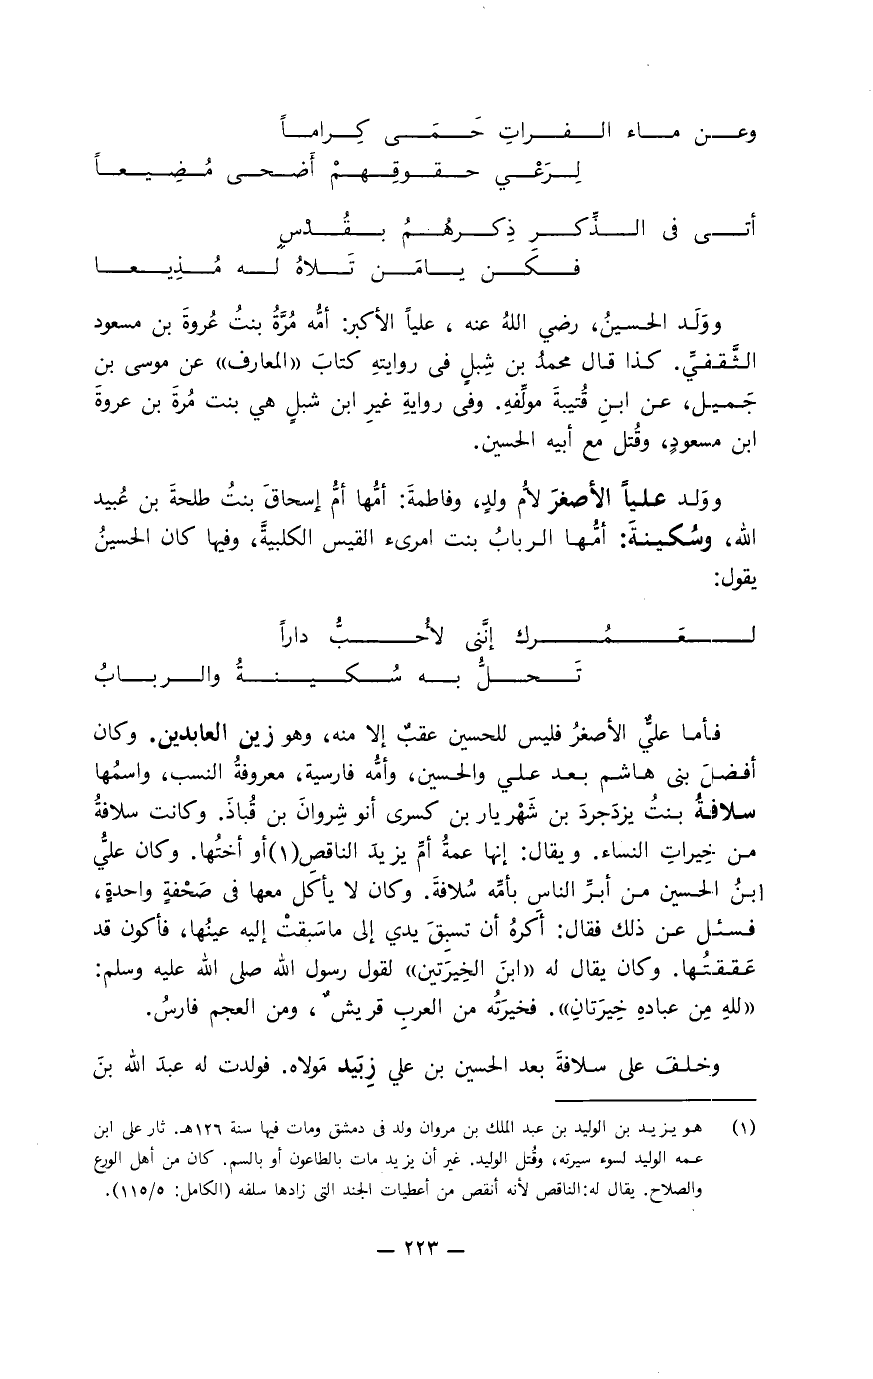 وعن ماء الفراتِ حَمَى كِراماً
لِرَعْي حقوقِهمْ أَضحى مُضِيعاً
أتى فى الذِّكر ذِكرهُمُ بقُدْسٍ
فكَن يامَن تَلاهُ له مُذِيعا
ووَلَد الحسينُ، رضي اللهُ عنه ، علياً الأكبر: أمُّه مُرَّةُ بنتُ عُروةَ بن مسعود
الثَّقفيِّ. كذا قال محمدُ بن شِبلٍ فى روايتهِ كتابَ «المعارف» عن موسى بن
جَميل، عن ابنِ قُتيبةَ مولِّفهِ. وفى روايةِ غيرِ ابن شبلٍ هي بنت مُرةَ بن عروةَ
ابن مسعودٍ، وقُتل مع أبيه الحسين.
ووَلد علياً الأصغرَ لأم ولدٍ، وفاطمةَ: أمُّها أمُّ إسحاقَ بنتُ طلحةَ بن عُبيد
الله، وسُكينةَ: أمُّها الربابُ بنت امرىء القيس الكلبيةً، وفيها كان الحسينُ
يقول:
لعَمُرك إنَّنى لأُحبُّ داراً
تَحلُّ به سُكينةُ والربابُ
فأما عليٌّ الأصغرُ فليس للحسين عقبٌ إلا منه، وهو زين العابدين. وكان
أفضلَ بنى هاشم بعد علي والحسين، وأمُّه فارسية، معروفةُ النسب، واسمُها
سلافةُ بنتُ يزدجردَ بن شَهْر يار بن كسرى أنو شِروانَ بن قُباذَ. وكانت سلافةُ
من خِيراتِ النساء. ويقال: إنها عمةُ أمِّ يزيدَ الناقصِ(١)أو أختُها. وكان عليُّ
ابنُ الحسين من أبرِّ الناسِ بأمِّه سُلافةَ. وكان لا يأكل معها فى صَحْفةٍ واحدةٍ،
فسئل عن ذلك فقال: أكرهُ أن تسبقَ يدي إلى ماسَبقتْ إليه عينُها، فأكون قد
عَققتُها. وكان يقال له «ابنَ الخِيرَتين» لقول رسول الله صلى الله عليه وسلم:
«للهِ مِن عبادهِ خِيرَتانِ». فخيرَتُه من العربِ قريشٌ ، ومن العجم فارسُ.
وخلفَ على سلافةَ بعد الحسين بن علي زِبَيد مَولاه. فولدت له عبدَ الله بنَ
(١) هو يزيد بن الوليد بن عبد الملك بن مروان ولد فى دمشق ومات فيها سنة ١٢٦هـ. ثار على ابن
عمه الوليد لسوء سيرته، وقُتل الوليد. غير أن يزيد مات بالطاعون أو بالسم. كان من أهل الورع
والصلاح. يقال له:الناقص لأنه أنقص من أعطيات الجند التى زادها سلفه (الكامل: ١١٥/٥).
— ٢٢٣ —